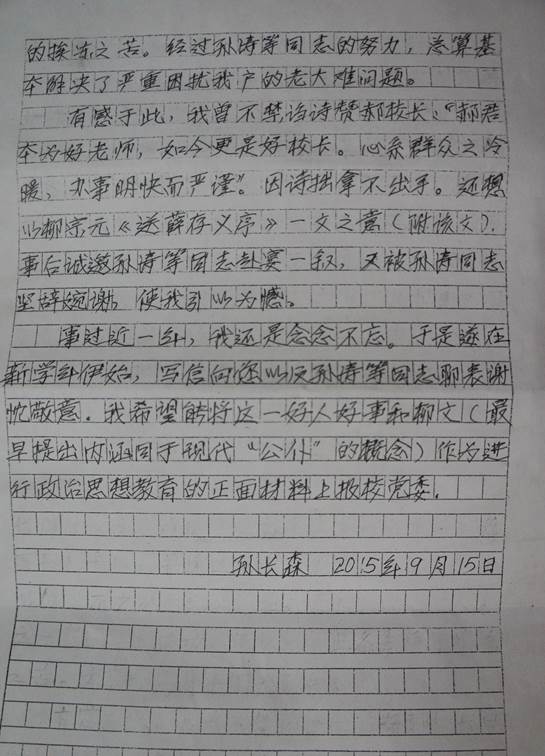 的挨冻之苦。经过孙涛等同志的努力，总算基
本解决了严重困扰我户的老大难问题。
有感于此，我曾不禁诌诗赞郝校长："郝君
本为好老师，如今更是好校长。心系群众之冷
暖，办事明快而严谨"。因诗拙拿不出手。还想
以柳宗元《送薛存义序》一文之意（附该文），
事后诚邀孙涛等同志赴宴一叙，又被孙涛同志
坚辞婉谢，使我引以为憾。
事过近一年，我还是念念不忘。于是遂在
新学年伊始，写信向您以及孙涛等同志聊表谢
忱敬意。我希望能将这一好人好事和柳文（最
早提出内涵同于现代"公仆"的概念）作为进
行政治思想教育的正面材料上报校党委。
孙长森 2015年9月15日